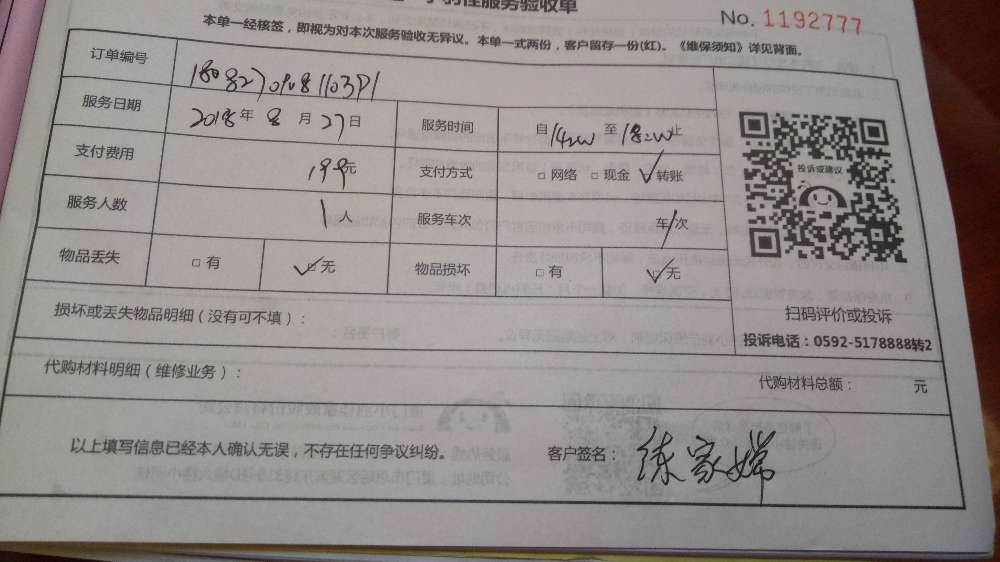 性服务验收单
No. 1192777
本单一经核签，即视为对本次服务验收无异议。本单一式两份，客户留存一份(红)。《维保须知》详见背面。
订单编号
服务日期 2018年8月27日 服务时间 自14:00至18:00止
支付费用 199元 支付方式 □网络 □现金 ☑转账
服务人数 1人 服务车次 车/次
物品丢失 □有 ☑无 物品损坏 □有 ☑无
投诉或建议
扫码评价或投诉
投诉电话：0592-5178888转2
损坏或丢失物品明细（没有可不填）：
代购材料明细（维修业务）： 代购材料总额： 元
以上填写信息已经本人确认无误，不存在任何争议纠纷。 客户签名：练家嫦